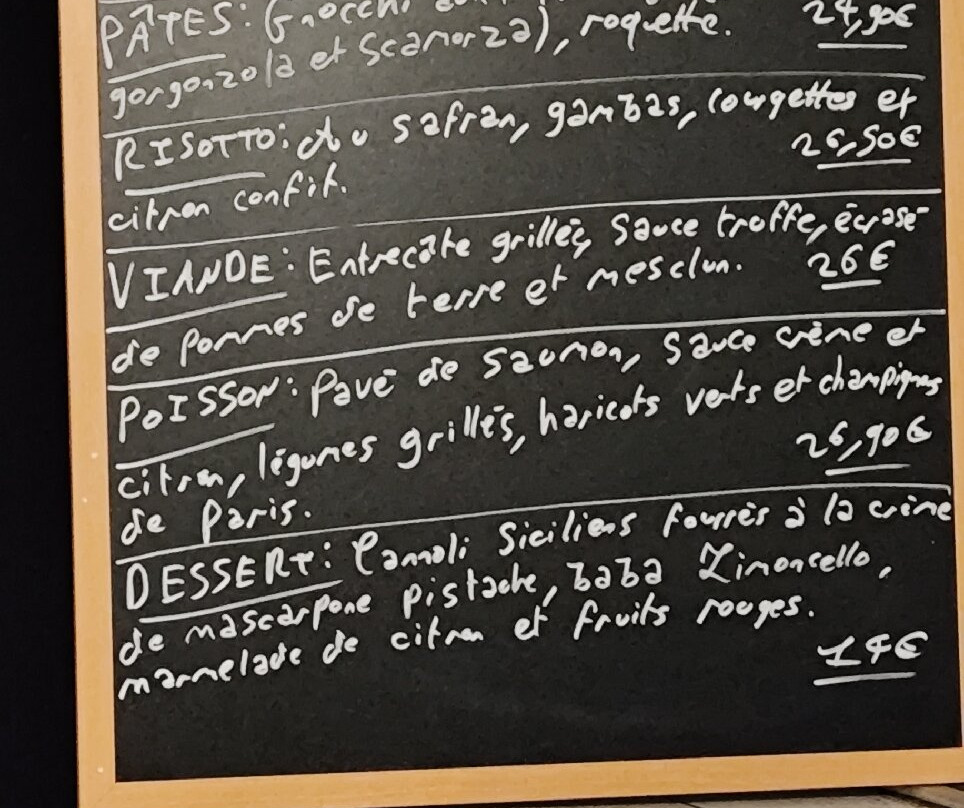 PÂTES: Gnocchi
gorgonzola et Scamorza), roquette. 24,90€
RISOTTO: Au safran, gambas, courgettes et
citron confit. 26,50€
VIANDE: Entrecôte grillée, Sauce truffe, écrasé
de pommes de terre et mesclun. 26€
POISSON: Pavé de saumon, sauce crème et
citron, légumes grillés, haricots verts et champignons
de Paris. 26,90€
DESSERT: Cannoli Siciliens fourrés à la crème
de mascarpone pistache, baba Limoncello,
marmelade de citron et fruits rouges.
14€